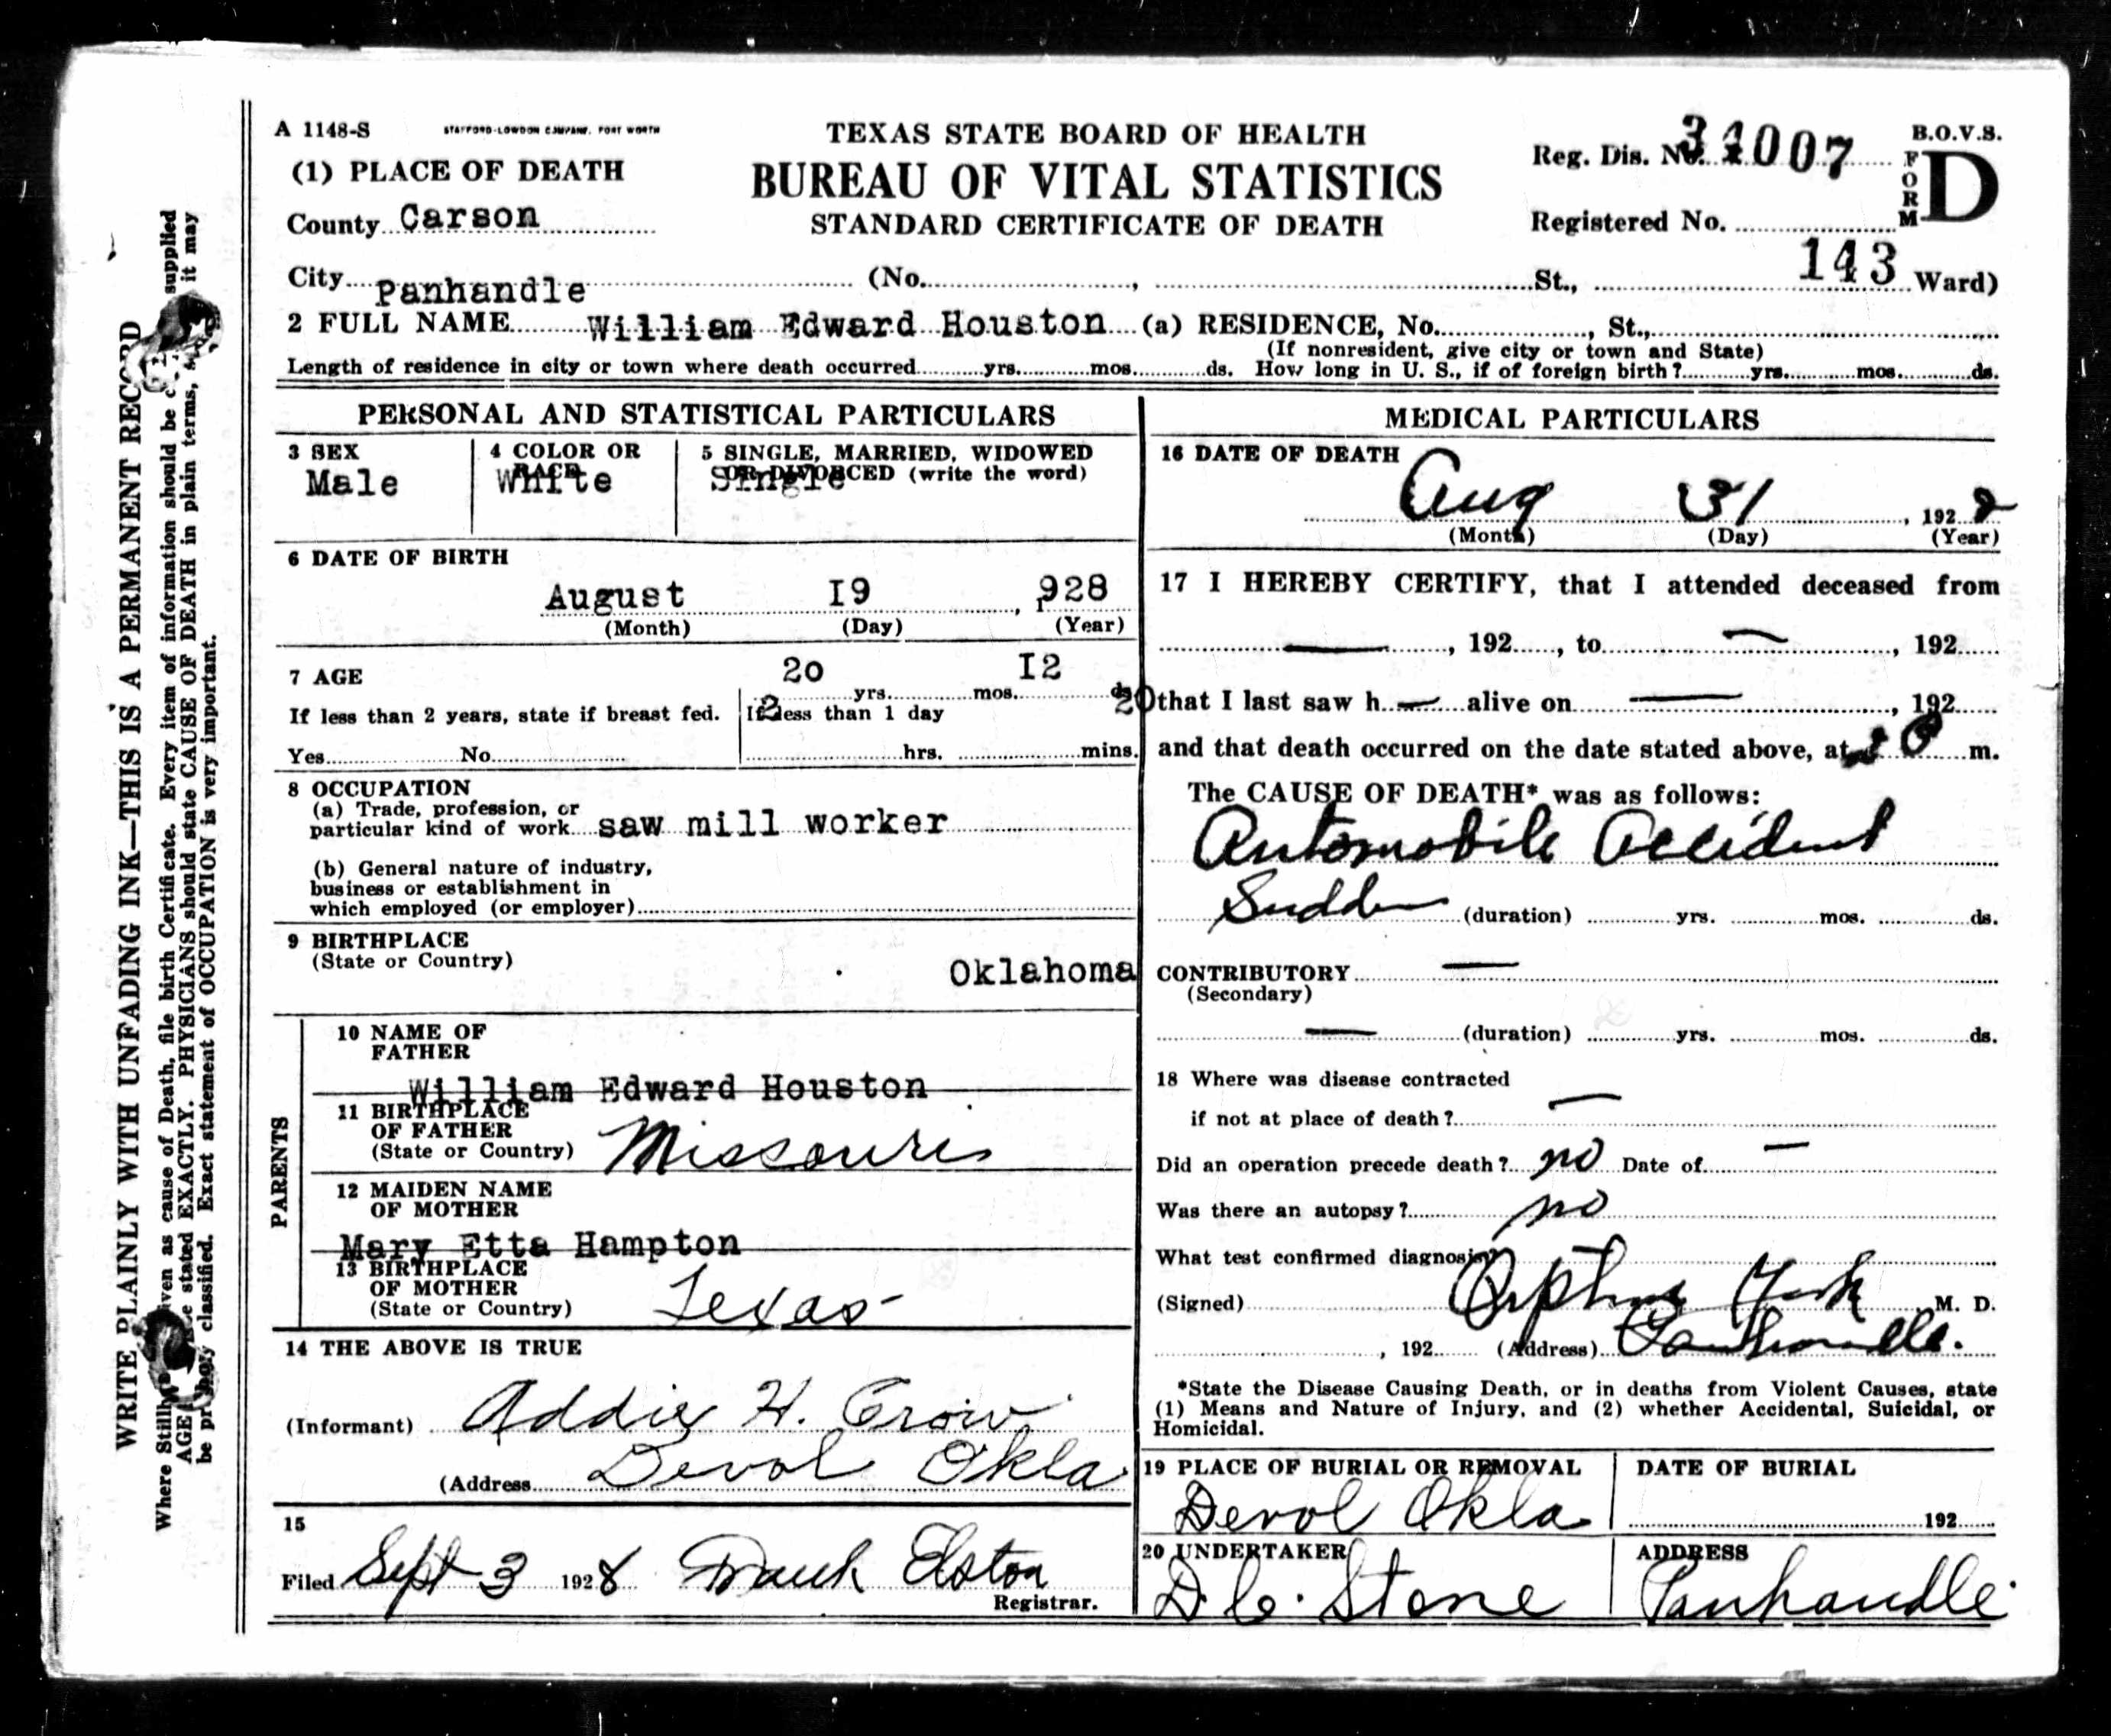 A 1148-S STAFFORD-LOWDON COMPANY, FORT WORTH
TEXAS STATE BOARD OF HEALTH
BUREAU OF VITAL STATISTICS
STANDARD CERTIFICATE OF DEATH
Reg. Dis. No. 34007
B.O.V.S.
FORM D
Registered No.
143
(1) PLACE OF DEATH
County Carson
City Panhandle (No. , St., Ward)
2 FULL NAME William Edward Houston (a) RESIDENCE, No. , St.,
(If nonresident, give city or town and State)
Length of residence in city or town where death occurred yrs. mos. ds. How long in U. S., if of foreign birth? yrs. mos. ds.
PERSONAL AND STATISTICAL PARTICULARS
3 SEX
Male
4 COLOR OR RACE
White
5 SINGLE, MARRIED, WIDOWED
OR DIVORCED (write the word)
Single
6 DATE OF BIRTH
August I9 , 1928
(Month) (Day) (Year)
7 AGE
20 I2
yrs. mos. ds.
If less than 2 years, state if breast fed.
Yes No
If less than 1 day
hrs. mins.
8 OCCUPATION
(a) Trade, profession, or
particular kind of work saw mill worker
(b) General nature of industry,
business or establishment in
which employed (or employer)
9 BIRTHPLACE
(State or Country)
Oklahoma
PARENTS
10 NAME OF
FATHER
William Edward Houston
11 BIRTHPLACE
OF FATHER
(State or Country) Missouri
12 MAIDEN NAME
OF MOTHER
Mary Etta Hampton
13 BIRTHPLACE
OF MOTHER
(State or Country) Texas
14 THE ABOVE IS TRUE
(Informant) Addie H. Crow
(Address Devol Okla
15
Filed Sept 3 1928 Frank Elston
Registrar.
MEDICAL PARTICULARS
16 DATE OF DEATH
Aug 31 , 1928
(Month) (Day) (Year)
17 I HEREBY CERTIFY, that I attended deceased from
— , 192 , to — , 192
that I last saw h — alive on — , 192
and that death occurred on the date stated above, at m.
The CAUSE OF DEATH* was as follows:
Automobile Accident
Sudden (duration) yrs. mos. ds.
CONTRIBUTORY —
(Secondary)
— (duration) yrs. mos. ds.
18 Where was disease contracted
if not at place of death? —
Did an operation precede death? no Date of —
Was there an autopsy? no
What test confirmed diagnosis?
(Signed) M. D.
, 192 (Address) Panhandle.
*State the Disease Causing Death, or in deaths from Violent Causes, state
(1) Means and Nature of Injury, and (2) whether Accidental, Suicidal, or
Homicidal.
19 PLACE OF BURIAL OR REMOVAL
Devol Okla
DATE OF BURIAL
192
20 UNDERTAKER
D.C. Stone
ADDRESS
Panhandle
WRITE PLAINLY WITH UNFADING INK—THIS IS A PERMANENT RECORD
Where Stillb given as cause of Death, file birth Certificate. Every item of information should be supplied
AGE stated EXACTLY. PHYSICIANS should state CAUSE OF DEATH in plain terms, it may
be properly classified. Exact statement of OCCUPATION is very important.